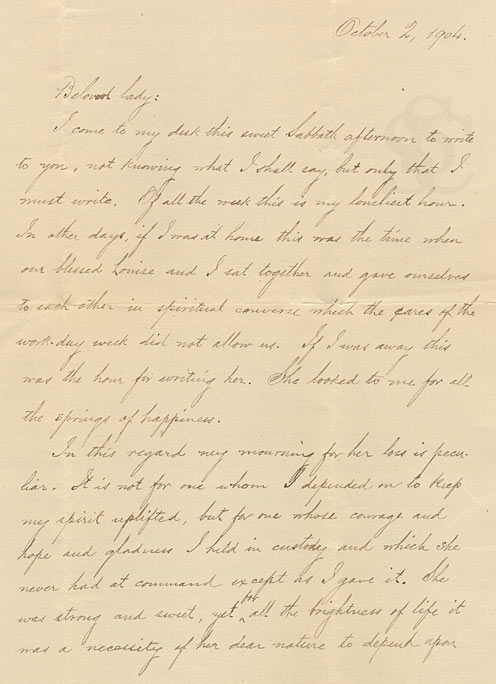 October 2, 1904.
Beloved lady:
I come to my desk this sweet Sabbath afternoon to write
to you, not knowing what I shall say, but only that I
must write. Of all the week this is my loneliest hour.
In other days, if I was at home this was the time when
our blessed Louise and I sat together and gave ourselves
to each other in spiritual converse which the cares of the
work-day week did not allow us. If I was away this
was the hour for writing her. She looked to me for all
the springs of happiness.
In this regard my mourning for her loss is pecu-
liar. It is not for one whom I depended on to keep
my spirit uplifted, but for one whose courage and
hope and gladness I held in custody and which she
never had at command except as I gave it. She
was strong and sweet, yet for all the brightness of life it
was a necessity of her dear nature to depend upon